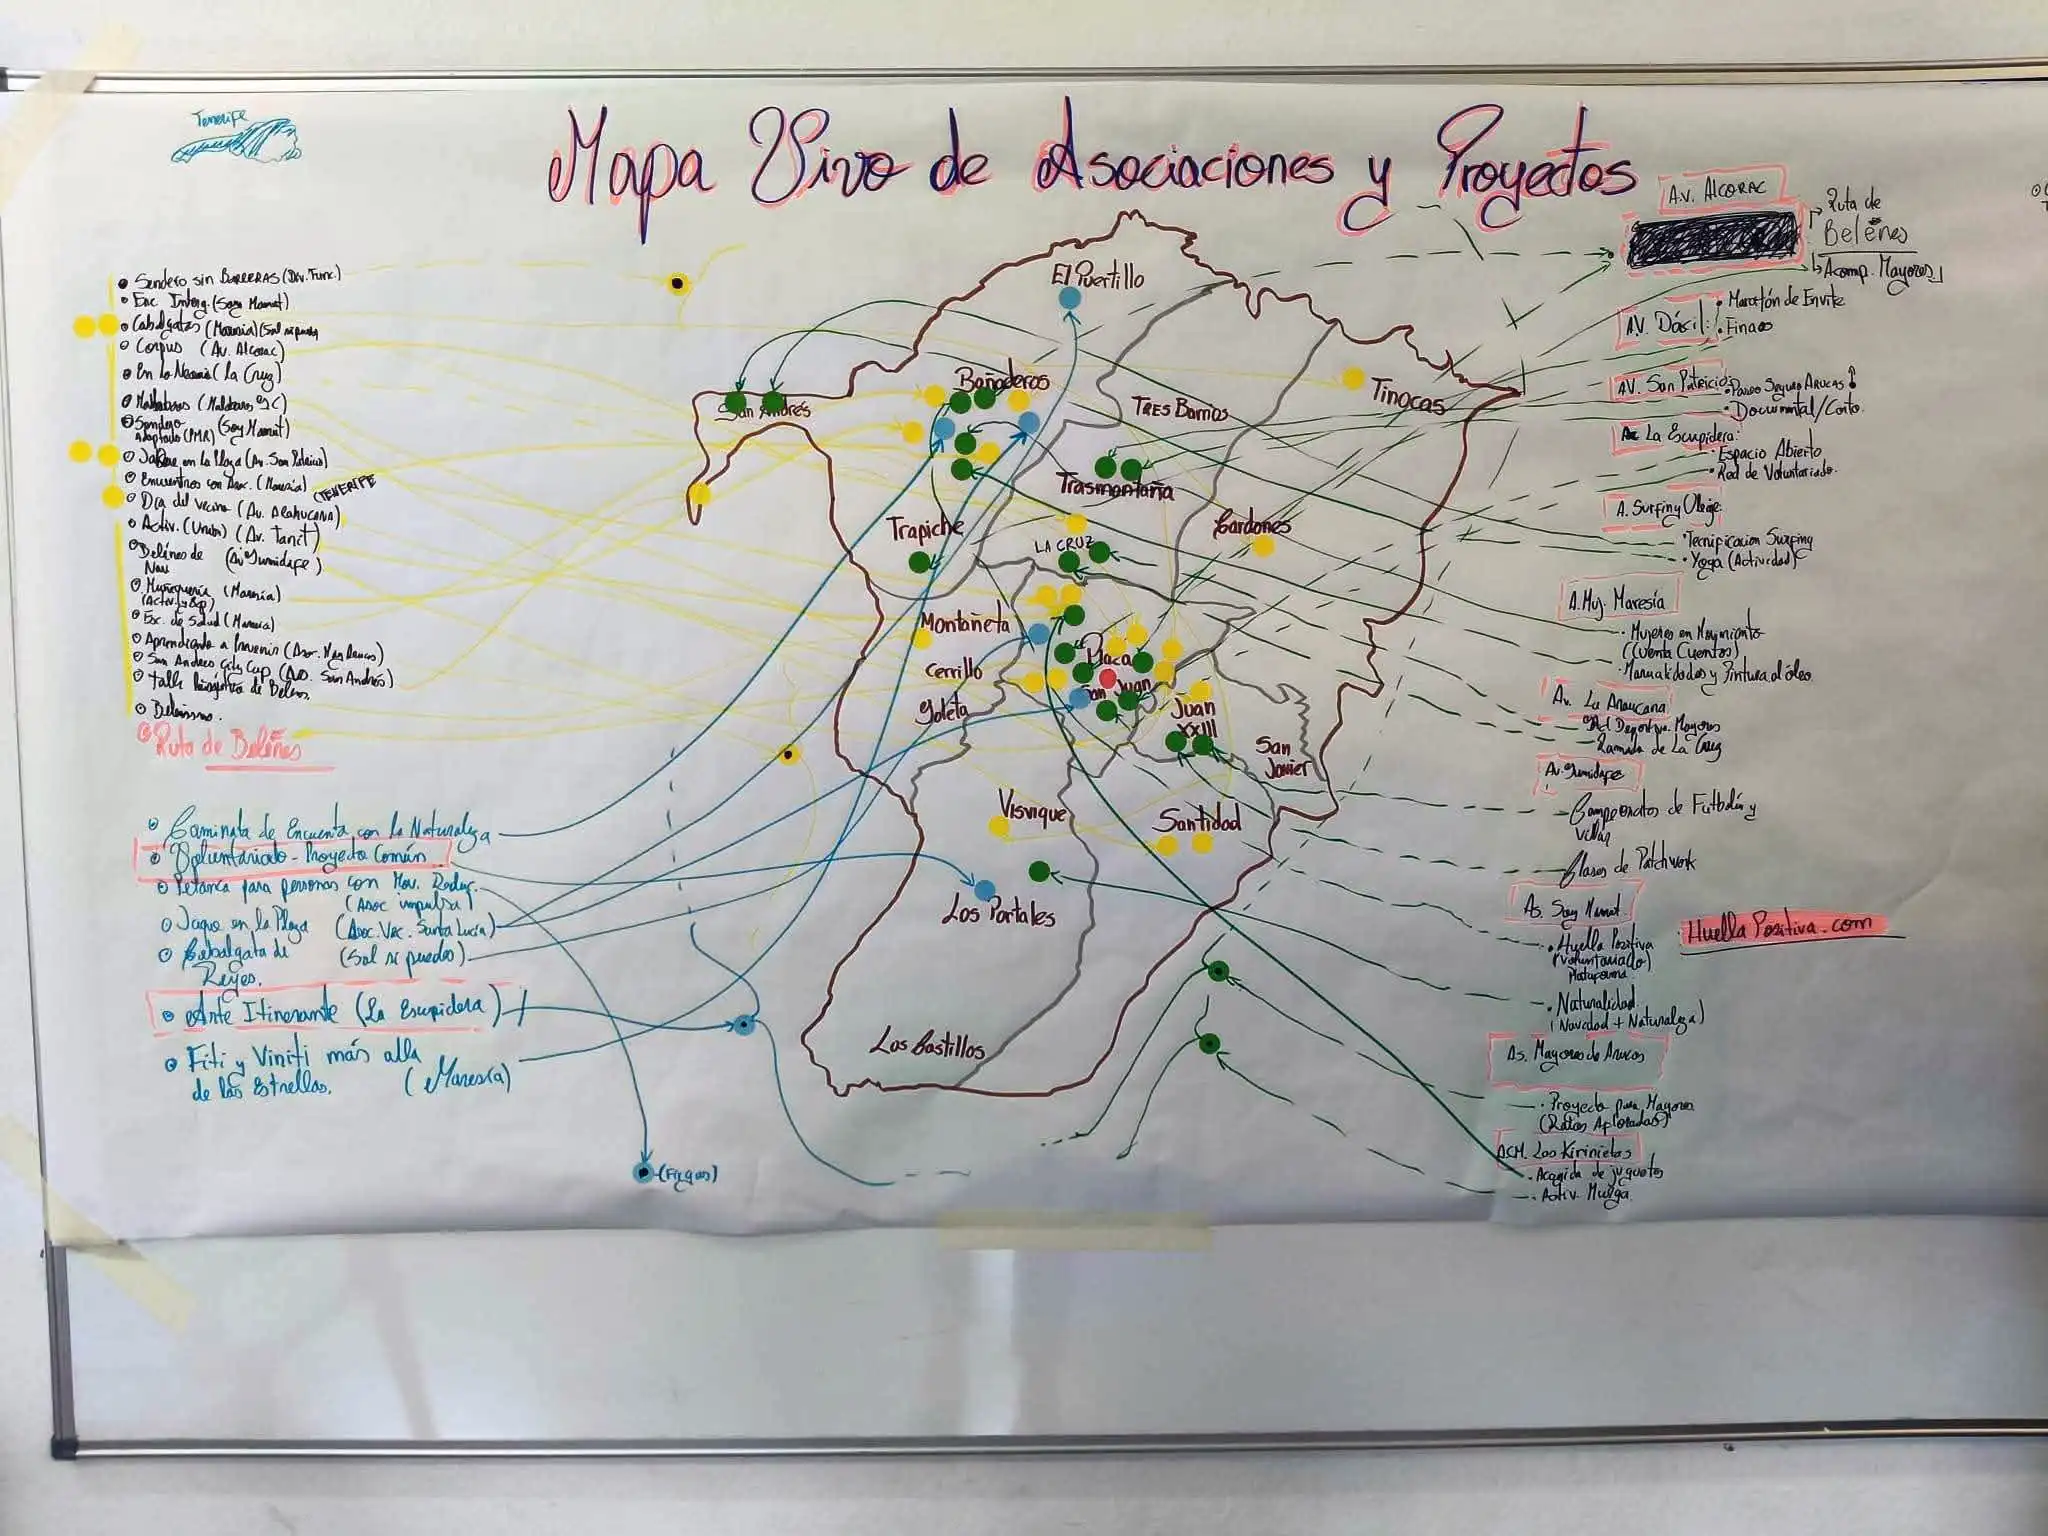 Tenerife
Mapa Vivo de Asociaciones y Proyectos
Sendero sin BARRERAS (Div. Func.)
Enc. Interg. (Soy Mamut)
Cabalgatas (Maresía) (Sal si puedes
Corpus (Av. Alcorac)
(La Cruz)
Sendero (Soy Mamut)
Adaptado (PMR)
en la Plaza (Av. San Patricio)
Encuentros con Asoc. (Maresía)
(TENERIFE
Día del vecino (Av. ARAUCANA)
Activ. (Av. Tanit)
Belénes de (Av. Gumidafe)
Nav
Muñequería (Maresía)
(Activ. y Exp)
Esc. de Salud (Maresía)
Aprendiendo a Prevenir (Asoc. May. Arucas)
San Andrés City Cup (Av. San Andrés)
Talle de Belenes.
Belenismo.
Ruta de Belénes
Caminata de Encuentro con la Naturaleza
Voluntariado - Proyecto Común
Petanca para personas con Mov. Reduc.
(Asoc impulsa)
Jaque en la Plaza (Asoc. Vec. Santa Lucía)
Cabalgata de (Sal si puedes)
Reyes.
Arte Itinerante (La Escupidera)
Fiti y Viniti más alla
de las Estrellas. (Maresía)
(Firgas)
El Puertillo
Bañaderos
San Andrés
TRES Barrios
Tinocas
Trasmontaña
Trapiche
Cardones
LA CRUZ
Montañeta
Cerrillo
Goleta
Plaza
San Juan
Juan
XXIII
San
Javier
Visvique
Santidad
Los Portales
Los Castillos
A.V. ALCORAC
Ruta de
Belénes
Acomp. Mayores
AV. Dácil:
Maratón de Envite
Finaos
AV. San Patricio:
Paseo Seguro ARUCAS
Documental/Corto.
La Escupidera:
Espacio Abierto
Red de Voluntariado.
A. Surfing
Tecnificacion Surfing
Yoga (Actividad)
A. Muj. Maresía
Mujeres en Movimiento
(Cuenta Cuentos)
Manualidades y Pintura al óleo
Av. La Araucana
Act Deportiva Mayores
Ramada de La Cruz
Av. Gumidafe
Campeonatos de Futbolín y
Clases de Patchwork
As. Soy Mamut.
Huella Positiva
(Voluntariado)
Plataforma
Huella Positiva.com
Naturalidad
(Navidad + Naturaleza)
As. Mayores de Arucas
Proyecto para Mayores
(Ratos Aflorados)
ACM. Los Kirinietas
Acogida de juguetes
Activ. Murga.